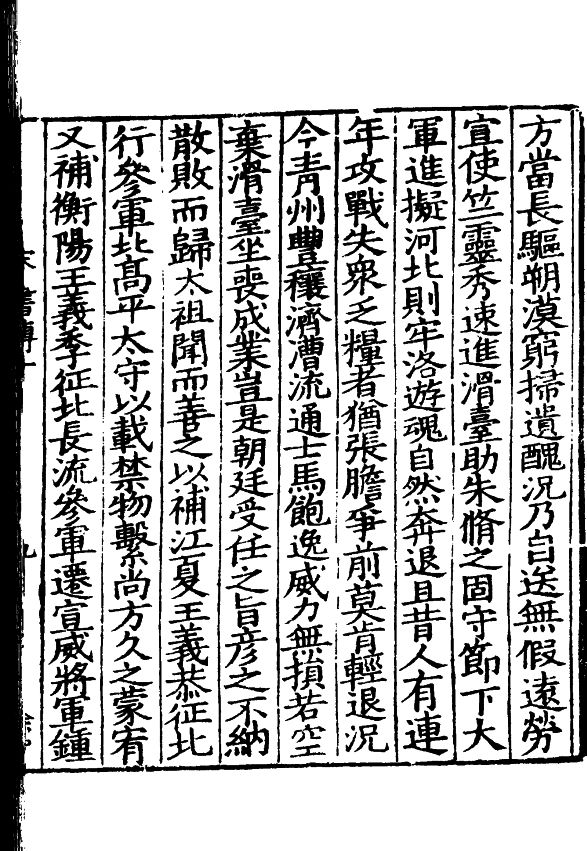 方當長驅朔漠窮掃遺醜況乃自送無假遠勞
宣使竺靈秀速進滑臺助朱脩之固守節下大
軍進擬河北則牢洛遊魂自然奔退且昔人有連
年攻戰失衆乏糧者猶張膽爭前莫肯輕退況
今青州豐穰濟漕流通士馬飽逸威力無損若空
棄滑臺坐喪成業豈是朝廷受任之旨彥之不納
散敗而歸太祖聞而善之以補江夏王義恭征北
行參軍北高平太守以載禁物繫尚方久之蒙宥
又補衡陽王義季征北長流參軍遷宣威將軍鍾